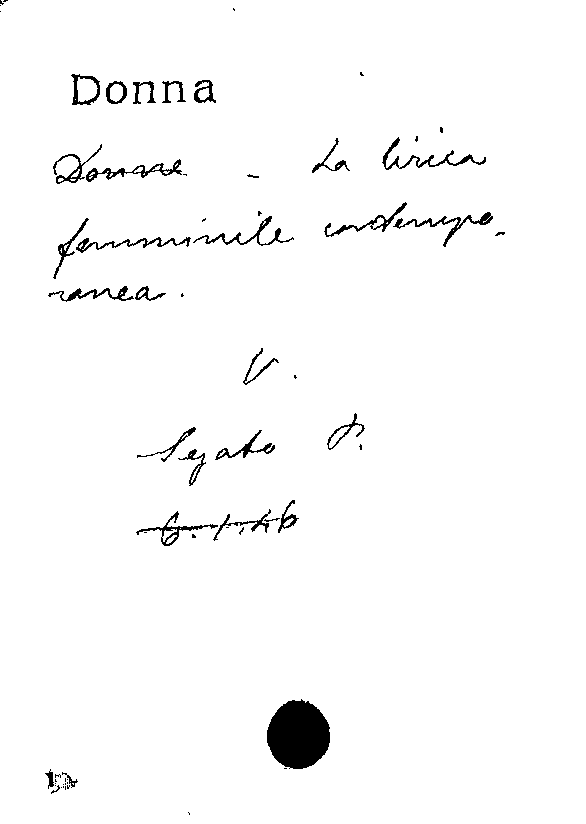 Donna
Donne - La lirica
femminile contempo-
ranea.
V.
Segato P.
6.1.46